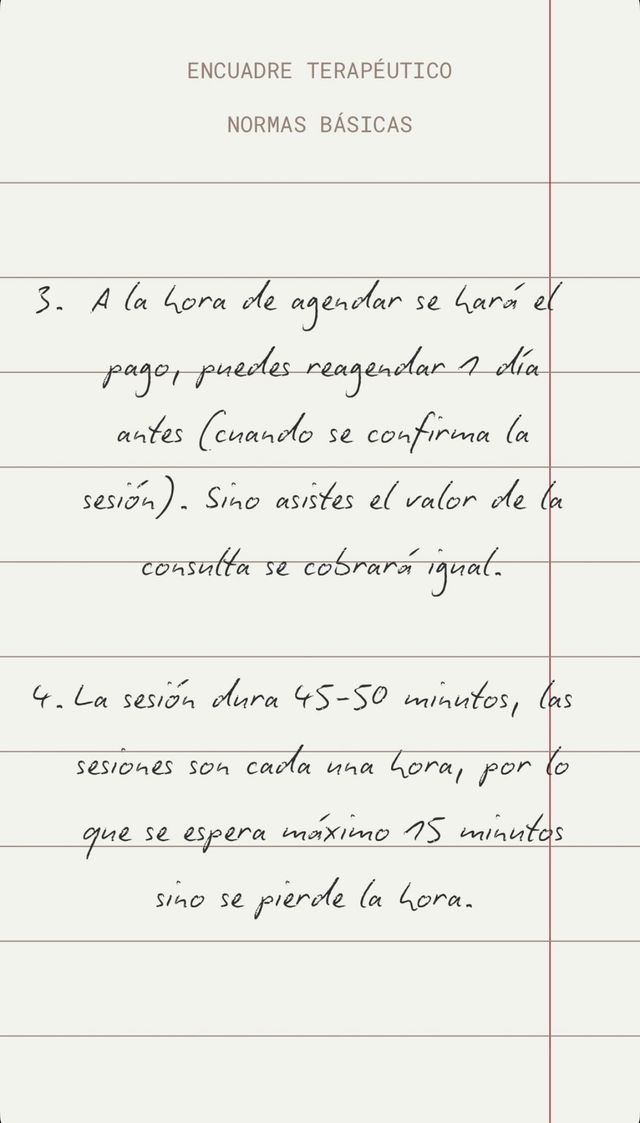 ENCUADRE TERAPÉUTICO
NORMAS BÁSICAS
3. A la hora de agendar se hará el
pago, puedes reagendar 1 día
antes (cuando se confirma la
sesión). Sino asistes el valor de la
consulta se cobrará igual.
4. La sesión dura 45-50 minutos, las
sesiones son cada una hora, por lo
que se espera máximo 15 minutos
sino se pierde la hora.